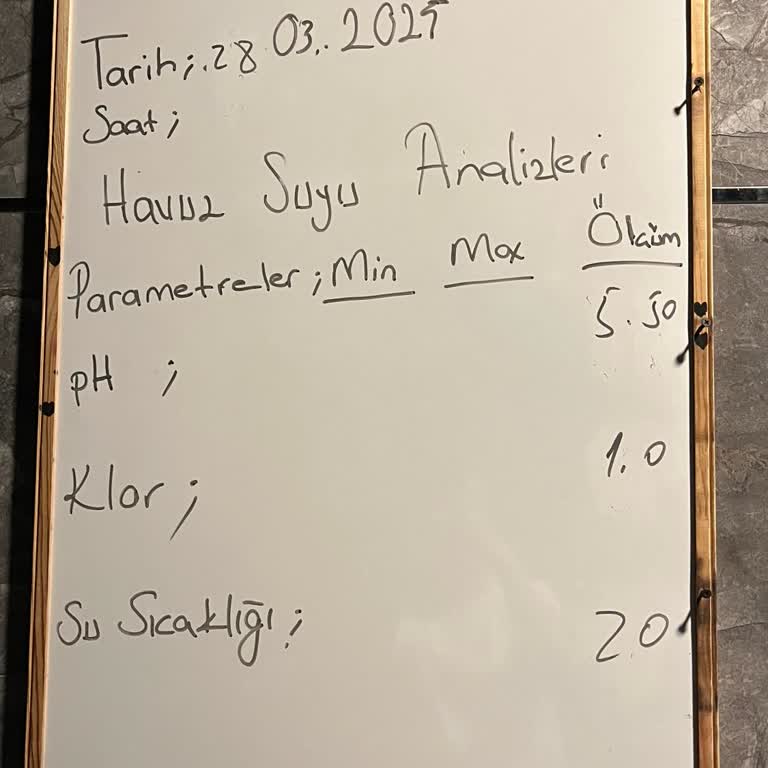 Tarih;.28 03.. 2025
Saat;
Havuz Suyu Analizleri
Parametreler; Min Max Ölçüm
pH ; 5.50
Klor; 1.0
Su Sıcaklığı; 20